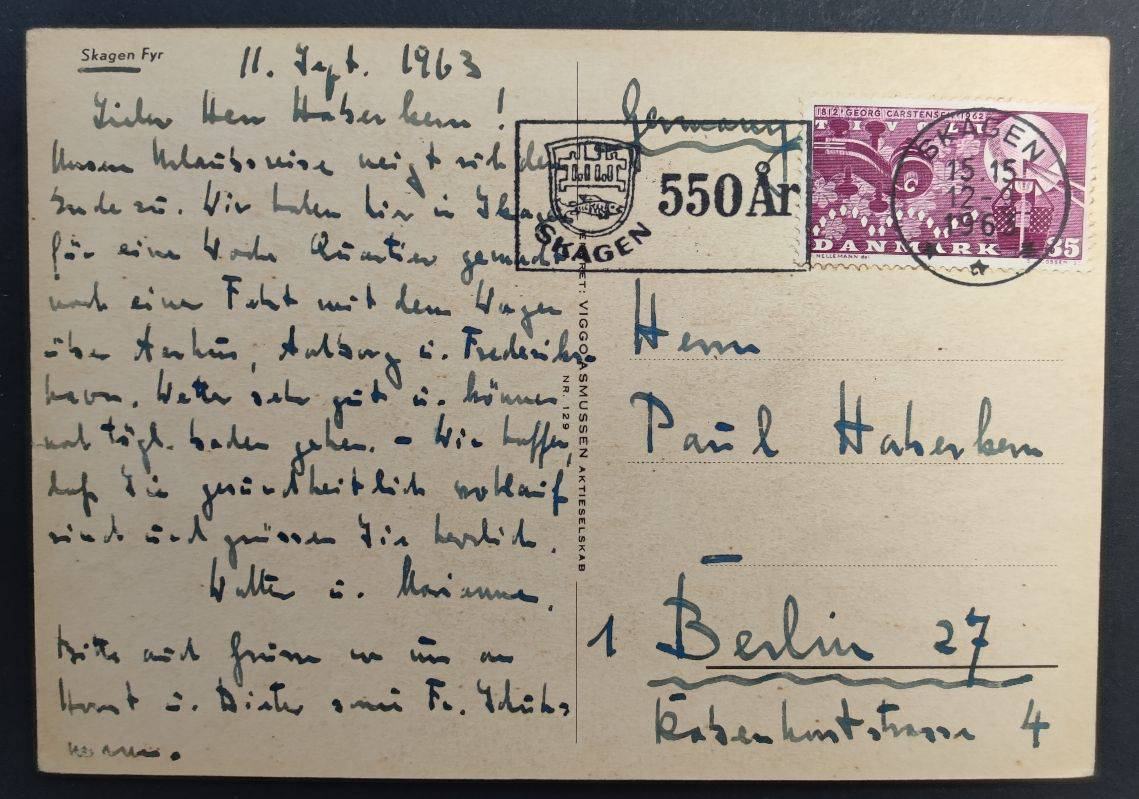 Skagen Fyr
11. Sept. 1963
Lieber Herr Haberkern!
Unsere Urlaubsreise neigt sich dem
Ende zu. Wir haben hier in Skagen
für eine Woche Quartier gemacht
nach einer Fahrt mit dem Wagen
über Aarhus, Aalborg u. Frederiks-
havn. Wetter sehr gut u. können
noch tägl. baden gehen. – Wir hoffen,
daß Sie gesundheitlich wohlauf
sind und grüssen Sie herzlich.
Walter u. Marianne.
Bitte auch Grüsse von uns an
Horst u. Dieter sowie Fr. Schuh-
mann.
ENERET: VIGGO ASMUSSEN AKTIESELSKAB
NR. 129
Germany
SKAGEN
550 År
1812 GEORG CARSTENSEN 1962
TIVOLI
DANMARK 35
NELLEMANN del.
SKAGEN
15-15
12-9
1963
Herrn
Paul Haberkern
1 Berlin 27
Rabenhorststrasse 4